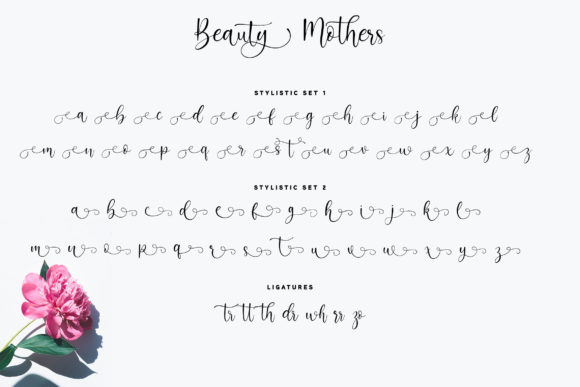 Beauty Mothers
STYLISTIC SET 1
a b c d e f g h i j k l
m n o p q r s t u v w x y z
STYLISTIC SET 2
a b c d e f g h i j k l
m n o p q r s t u v w x y z
LIGATURES
tr tt th dr wh rr zo